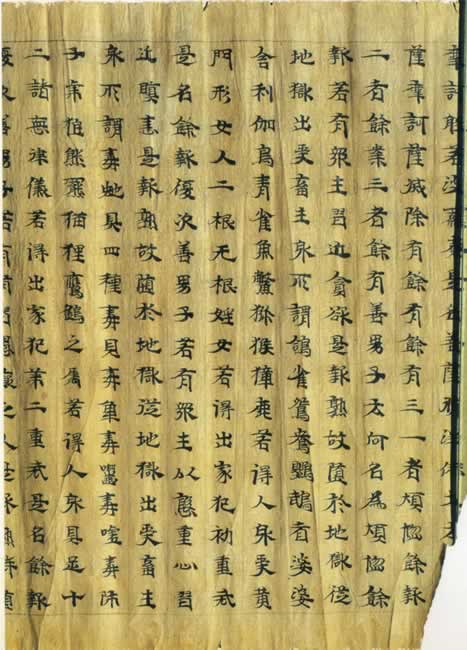 摩訶般若波
薩摩訶薩滅除有餘有餘有三一者煩惱餘報
二者餘業三者餘有善男子云何名為煩惱餘
報若有眾生習近貪欲是報熟故墮於地獄從
地獄出受畜生身所謂鴿雀鴛鴦鸚鵡耆婆婆
舍利伽鳥青雀魚鱉獼猴獐鹿若得人身受黃
門形女人二根无根婬女若得出家犯初重戒
是名餘報復次善男子若有眾生以慇重心習
近瞋恚是報熟故墮於地獄從地獄出受畜生
身所謂毒虵具四種毒見毒觸毒齧毒噓毒師
子虎狼熊羆猫狸鷹鷂之属若得人身具足十
二諸無律儀若得出家犯第二重戒是名餘報
復次善男子若有習愚癡之人是報熟時墮